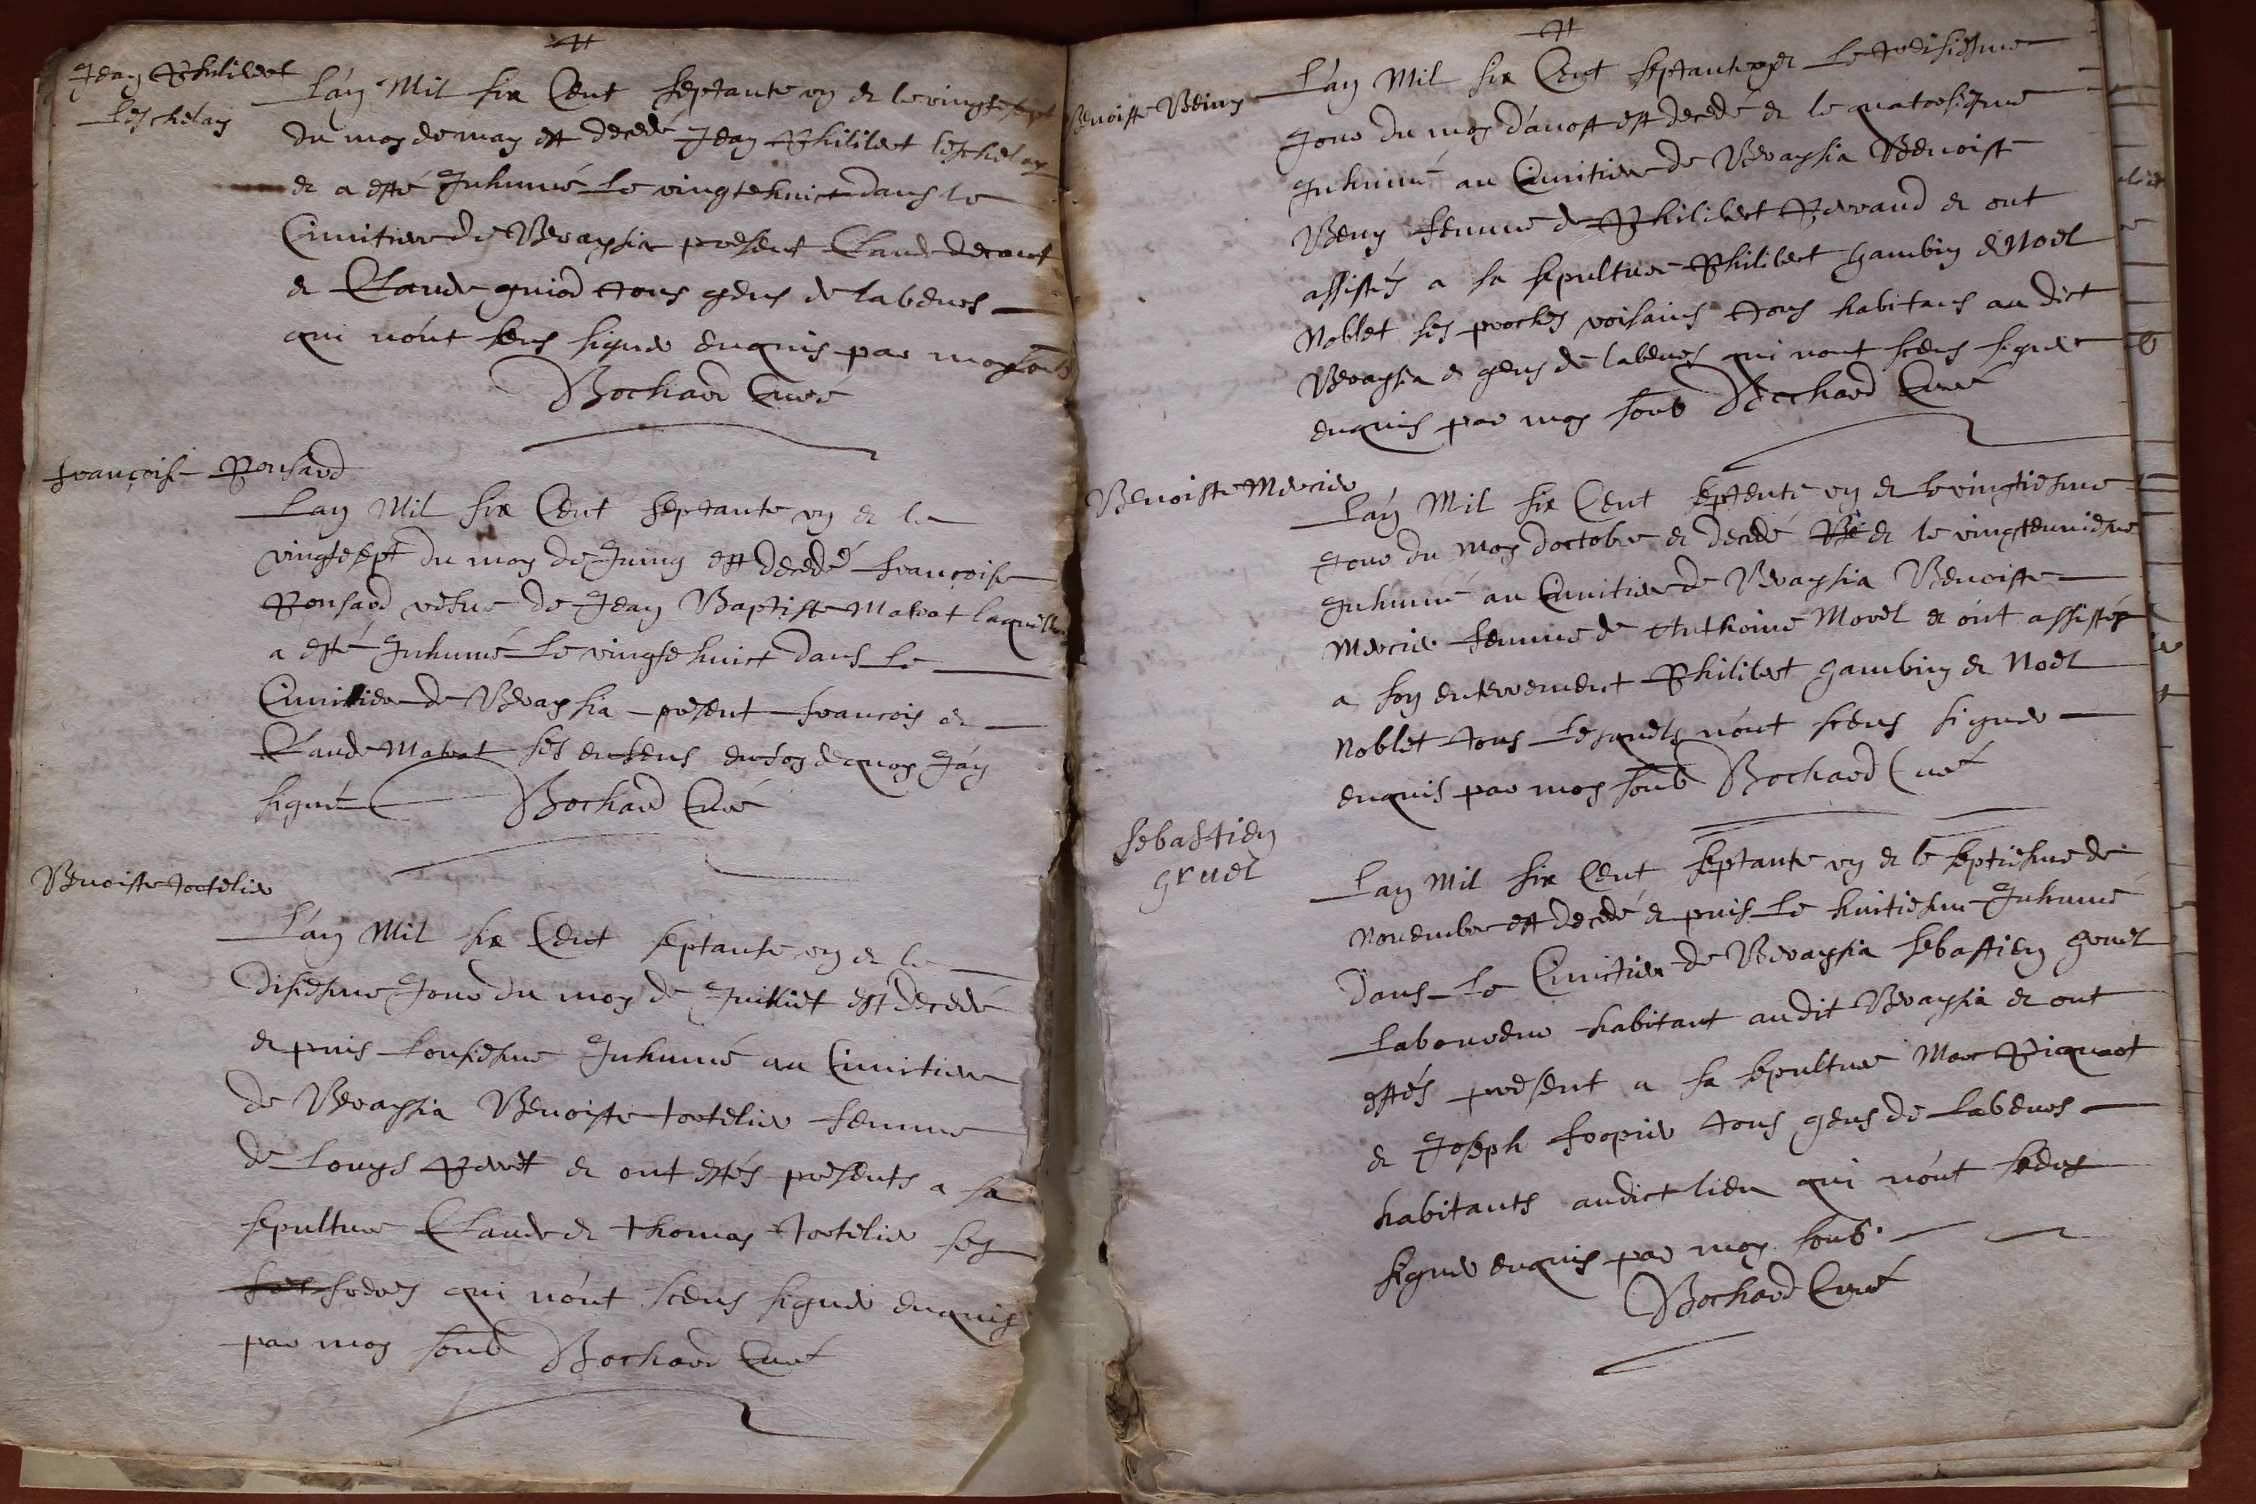 Jean Philibert
Leschelay
L'an Mil six Cent septante un et le vingtesept
du moy de may est decedé Jean Philibert leschelay
et a esté Inhumé le vingtehuict dans le
Cimitiere de Veraysia present Claude
et Claude guiod tous gens de labeurs
qui n'ont sceus signer enquis par moy soub
Bochard Curé
françoise Ronsard
L'an Mil six Cent septante un et le
vingtsept du moy de Juing est decedé françoise
Ronsard vefue de Jean Baptiste Mabat laquelle
a esté Inhumé le vingtehuict dans le
Cimitiere de Veraysia present françois et
Claude Mabat ses enfens en foy de quoy J'ay
signé Bochard Curé
Benoiste tortelier
L'an Mil six Cent septante un et le
disiesme Jour du moy de Juilliet est decedé
et puis l'onsiesme Inhumé au Cimitiere
de Veraysia Benoiste tortelier femme
de Louys Perret et ont estés présents a sa
sepulture Claude et thomas tortelier ses
freres qui n'ont sceus signer enquis
par moy soub Bochard Curé
Benoiste
L'an Mil six Cent septante un et le treisiesme
Jour du moy d'auost est decedé et le quatorsiesme
Inhumé au Cimitiere de Veraysia Benoiste
femme de Philibert Perraud et ont
assistés a sa sepulture Philibert Gambin et Noël
Noblet ses proches voisains tous habitans au dict
Veraysia et gens de labeurs qui n'ont sceus signer
enquis par moy soub Bochard Curé
Benoiste Mercier
L'an Mil six Cent septente un et le vingtiesme
Jour du moy d'octobre et decedé et le vingteuniesme
Inhumé au Cimitiere de Veraysia Benoiste
Mercier femme de Anthoine Morel et ont assistés
a son enterrement Philibert Gambin et Noël
Noblet tous lesquels n'ont sceus signer
enquis par moy soub Bochard Curé
Sebastien
gruel
L'an Mil six Cent septante un et le septiesme de
Novembre est decedé et puis le huitiesme Inhumé
dans le Cimitiere de Veraysia Sebastien Gruel
Laboureur habitant audit Veraysia et ont
estés présent a sa sepulture Marc Piquart
et Joseph fropier tous gens de labeurs
habitants audict lieu qui n'ont sceus
signer enquis par moy soub.
Bochard Curé